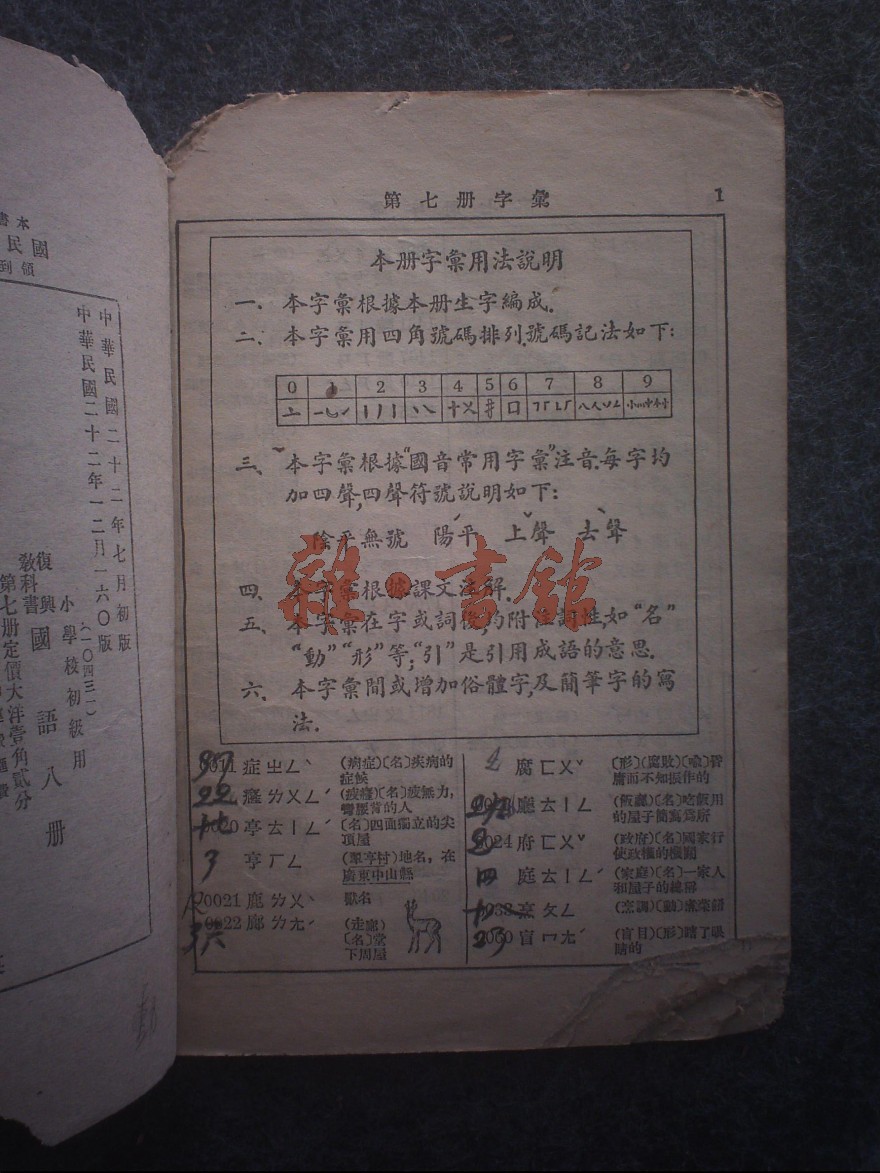 第七册字彙
1
本册字彙用法說明
一、本字彙根據本册生字編成.
二、本字彙用四角號碼排列.號碼記法如下:
0 1 2 3 4 5 6 7 8 9
三、本字彙根據"國音常用字彙"注音.每字均
加四聲,四聲符號說明如下:
陰平無號 陽平ˊ 上ˇ聲 去ˋ聲
四、本字彙根據課文注解.
五、本字彙在字或詞後,均附注詞性如"名"
"動""形"等;"引"是引用成語的意思.
六、本字彙間或增加俗體字,及簡筆字的寫
法.
症ㄓㄥˋ (病症)〔名〕疾病的
症候
ㄌㄨㄥˊ 〔名〕疲無力,
彎腰背的人
亭ㄊㄧㄥˊ 〔名〕四面獨立的尖
頂屋
亨ㄏㄥ (翠亨村)地名,在
廣東中山縣
0021 鹿ㄌㄨˋ 獸名
0022 廊ㄌㄤˊ (走廊)
〔名〕堂
下周屋
腐ㄈㄨˇ 〔形〕(腐敗)
廳ㄊㄧㄥ (飯廳)〔名〕吃飯用
的屋子簡寫爲所
0024 府ㄈㄨˇ (政府)〔名〕國家行
使政權的機關
庭ㄊㄧㄥˊ (家庭)〔名〕一家人
和屋子的總稱
烹ㄆㄥ (烹調)〔動〕煮菜餚
盲ㄇㄤˊ (盲目)〔形〕瞎了眼
睛的
中華民國二十二年七月初版
中華民國二十二年一二月一六〇版
(一〇四三一)
小學校初級用
復興
教科書 國語八册
第七册定價大洋壹角貳分
雜·書館